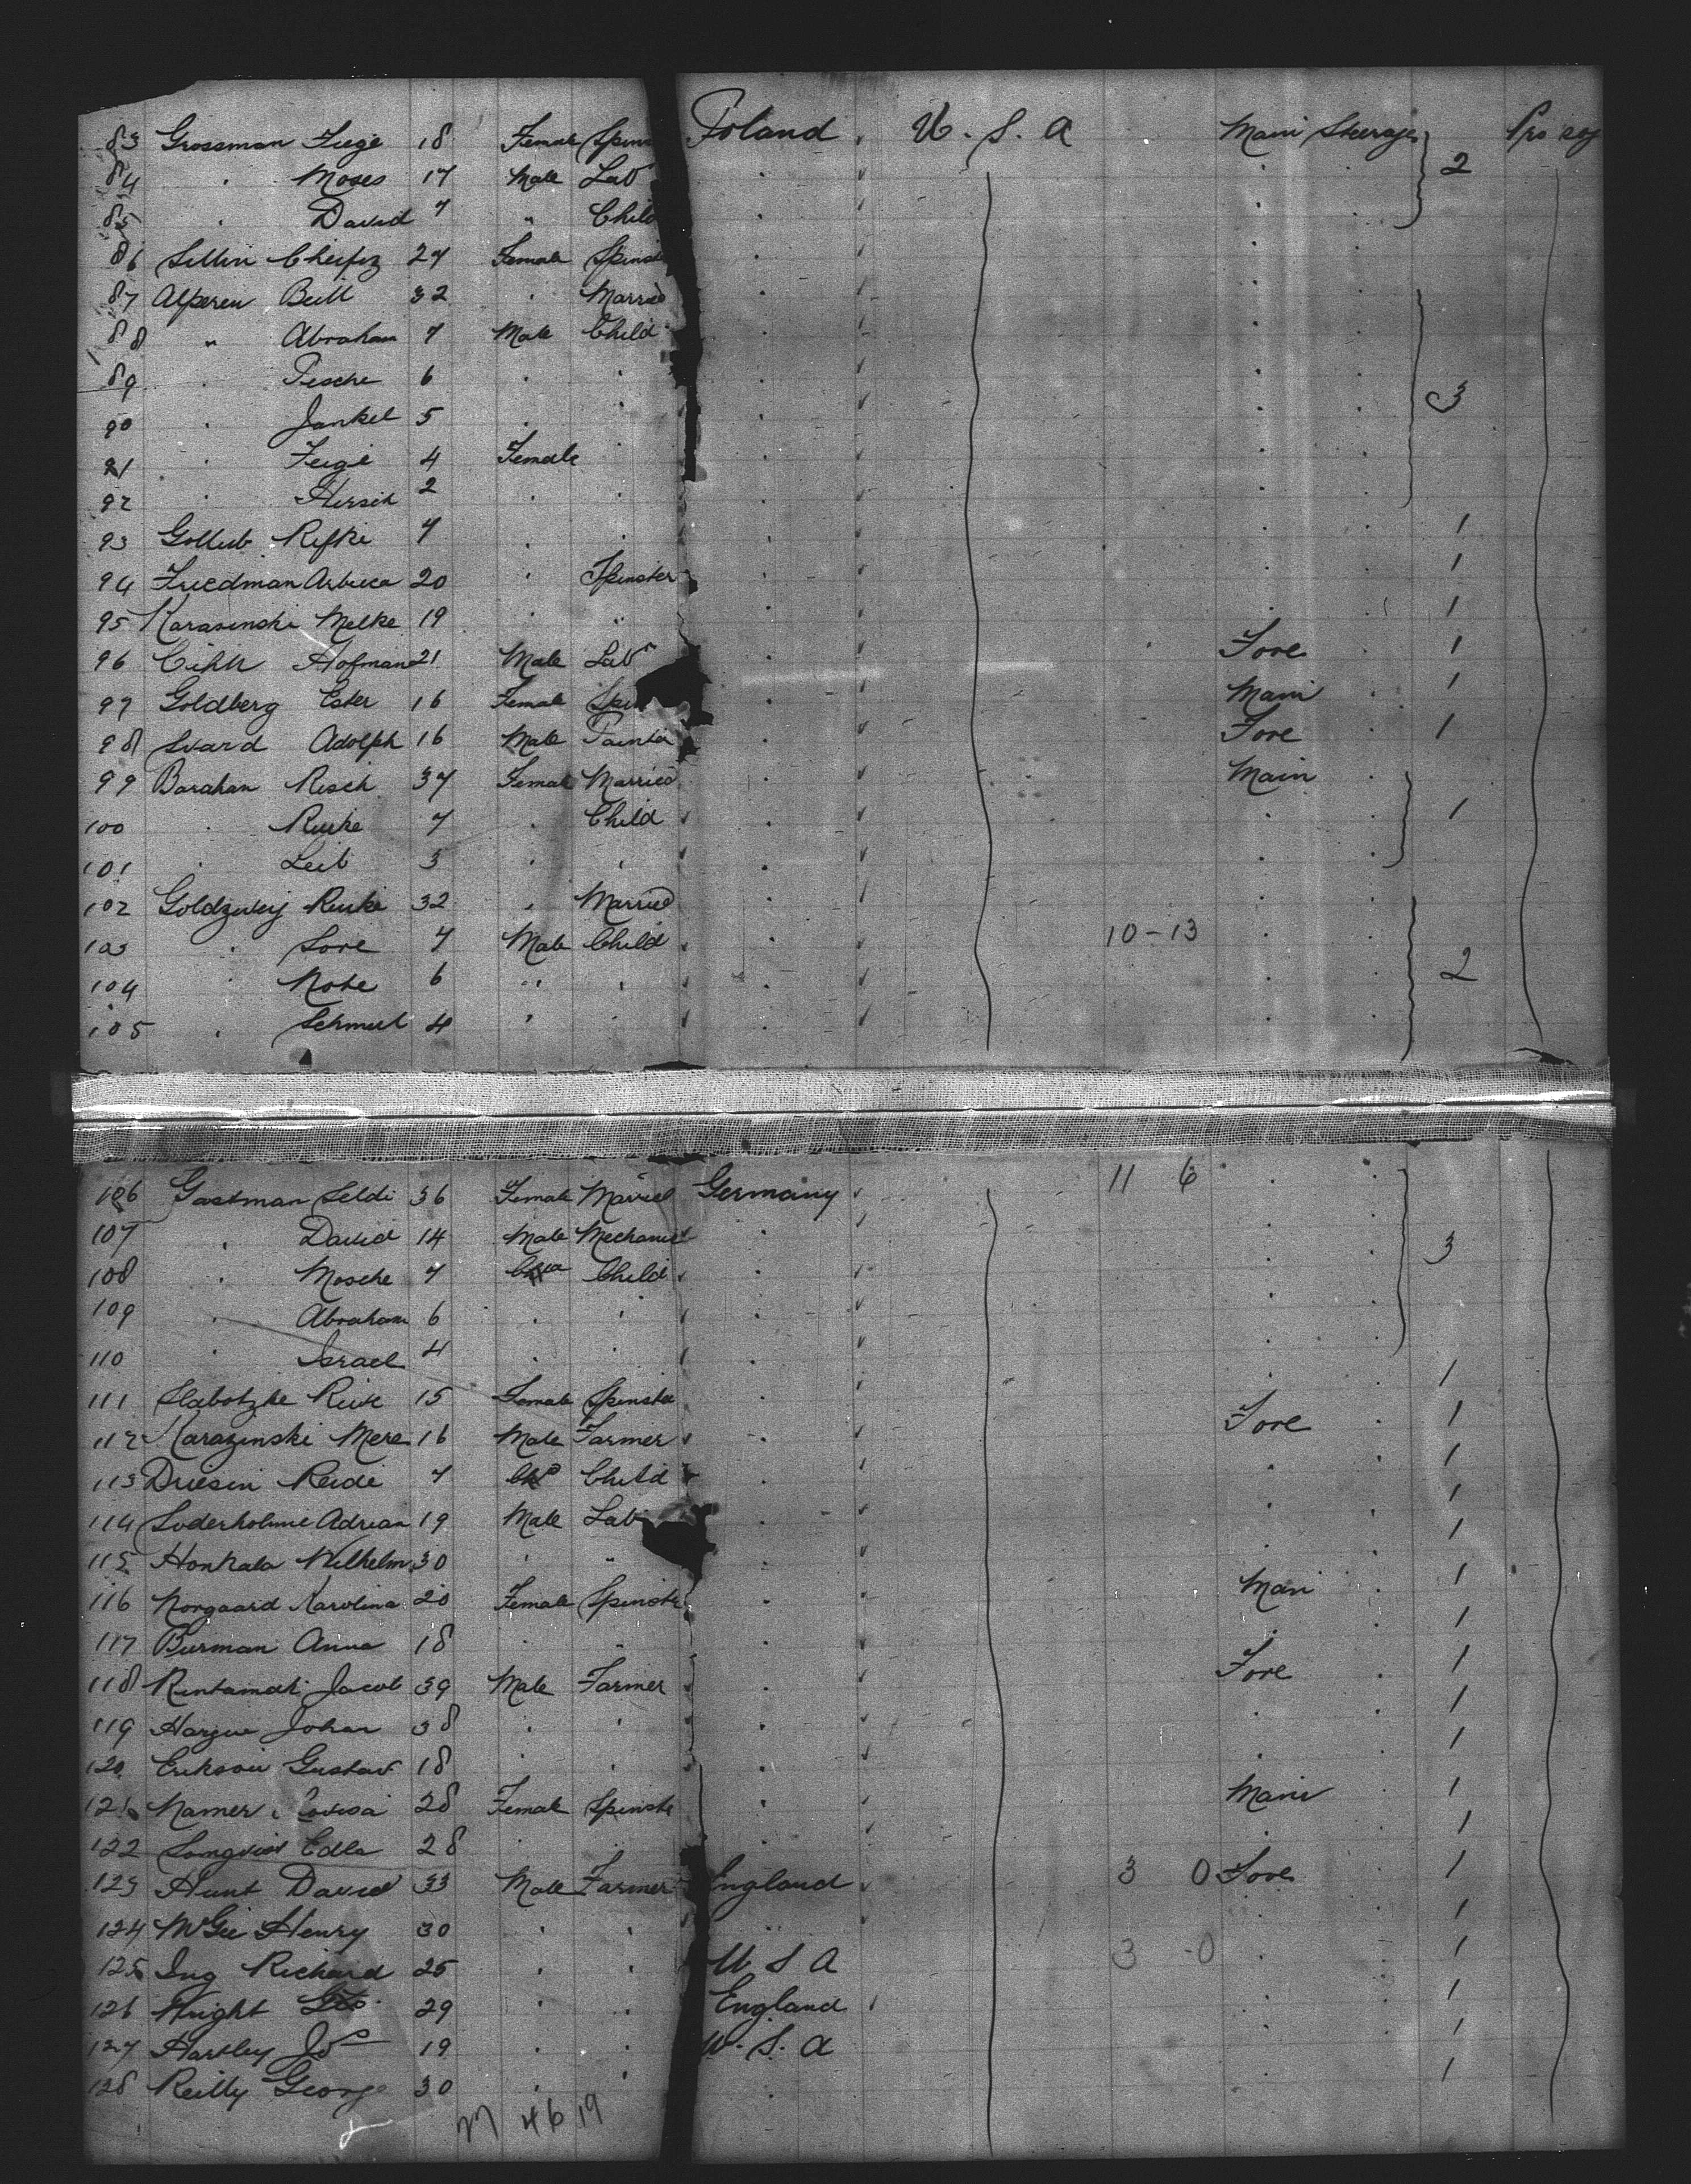 83 Grossman Feige 18 Female Spins Poland U. S. A Main Steerage Pro roy
84 " Moses 17 Male Labr 2
85 " David 7 " Child
86 24 Female Spinst
87 Alperen Beill 32 " Married
88 " Abraham 7 Male Child
89 " Pesche 6 " "
90 " Jankel 5 " " 3
91 " Feige 4 Female "
92 " Hirsch 2 " "
93 Gollub Rifke 7 " " 1
94 Friedman 20 " Spinster 1
95 Karasinski Melke 19 " " 1
96 Hofman 21 Male Labr Fore 1
97 Goldberg Ester 16 Female Spin Main 1
98 Svard Adolph 16 Male Painter Fore 1
99 Barahan Risch 37 Female Married Main
100 " Rucke 7 " Child 1
101 " Leib 3 " "
102 Goldzweig Rucke 32 " Married
103 " Sore 7 Male Child 10-13
104 " Note 6 " " 2
105 " Schmul 4 " "
106 Gastman Seldi 36 Female Married Germany 11 6
107 " David 14 Male Mechanic 3
108 " Mosche 7 Child
109 " Abraham 6 " "
110 " Israel 4 " "
111 Slabotzke 15 Female Spinster 1
112 Karazinski Mere 16 Male Farmer Fore 1
113 Driesin Reide 7 Child 1
114 Soderholme Adrian 19 Male Labr 1
115 Honkala Wilhelm 30 " " 1
116 Norgaard Karolina 20 Female Spinster Main 1
117 Burman Anna 18 " " 1
118 Rintamaki Jacob 39 Male Farmer Fore 1
119 Johan 38 " " 1
120 Erikson Gustav 18 " " 1
121 Lovisa 28 Female Spinster Main 1
122 Edla 28 " " 1
123 Hunt David 33 Male Farmer England 3 0 Fore 1
124 McGee Henry 30 " " " 1
125 Ing Richard 25 " " U S A 3 - 0 1
126 Wright Geo. 29 " " England 1
127 Hartley Jos 19 " " U. S. A 1
128 Reilly George 30 " " " 1
M 46 19